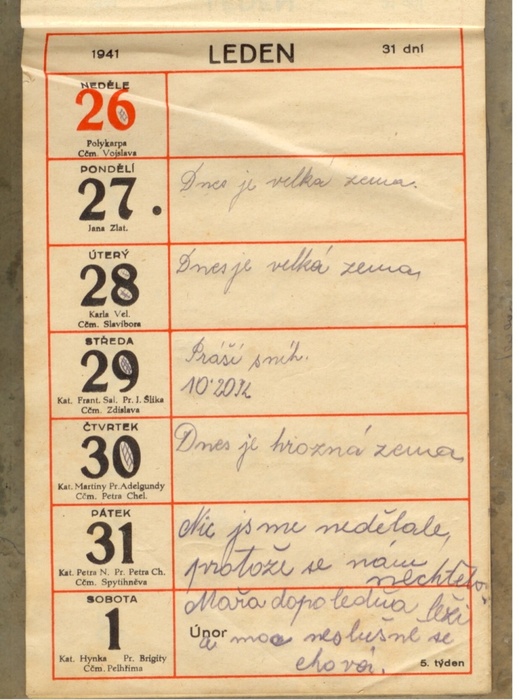 1941 LEDEN 31 dní
NEDĚLE
26
Polykarpa
Ččm. Vojslava
PONDĚLÍ
27.
Jana Zlat.
Dnes je velká zema.
ÚTERÝ
28
Karla Vel.
Ččm. Slavibora
Dnes je velká zema,
STŘEDA
29
Kat. Frant. Sal. Pr. J. Šlika
Ččm. Zdislava
Práší sníh.
ČTVRTEK
30
Kat. Martiny Pr. Adelgundy
Ččm. Petra Chel.
Dnes je hrozná zema,
PÁTEK
31
Kat. Petra N. Pr. Petra Ch.
Ččm. Spytihněva
Nic jsme nedělale,
protože se nám
nechtělo.
SOBOTA
1
Kat. Hynka Pr. Brigity
Ččm. Pelhřima
Mařa dopoledňa leží
Únor
a moc neslušně se
chová.
5. týden